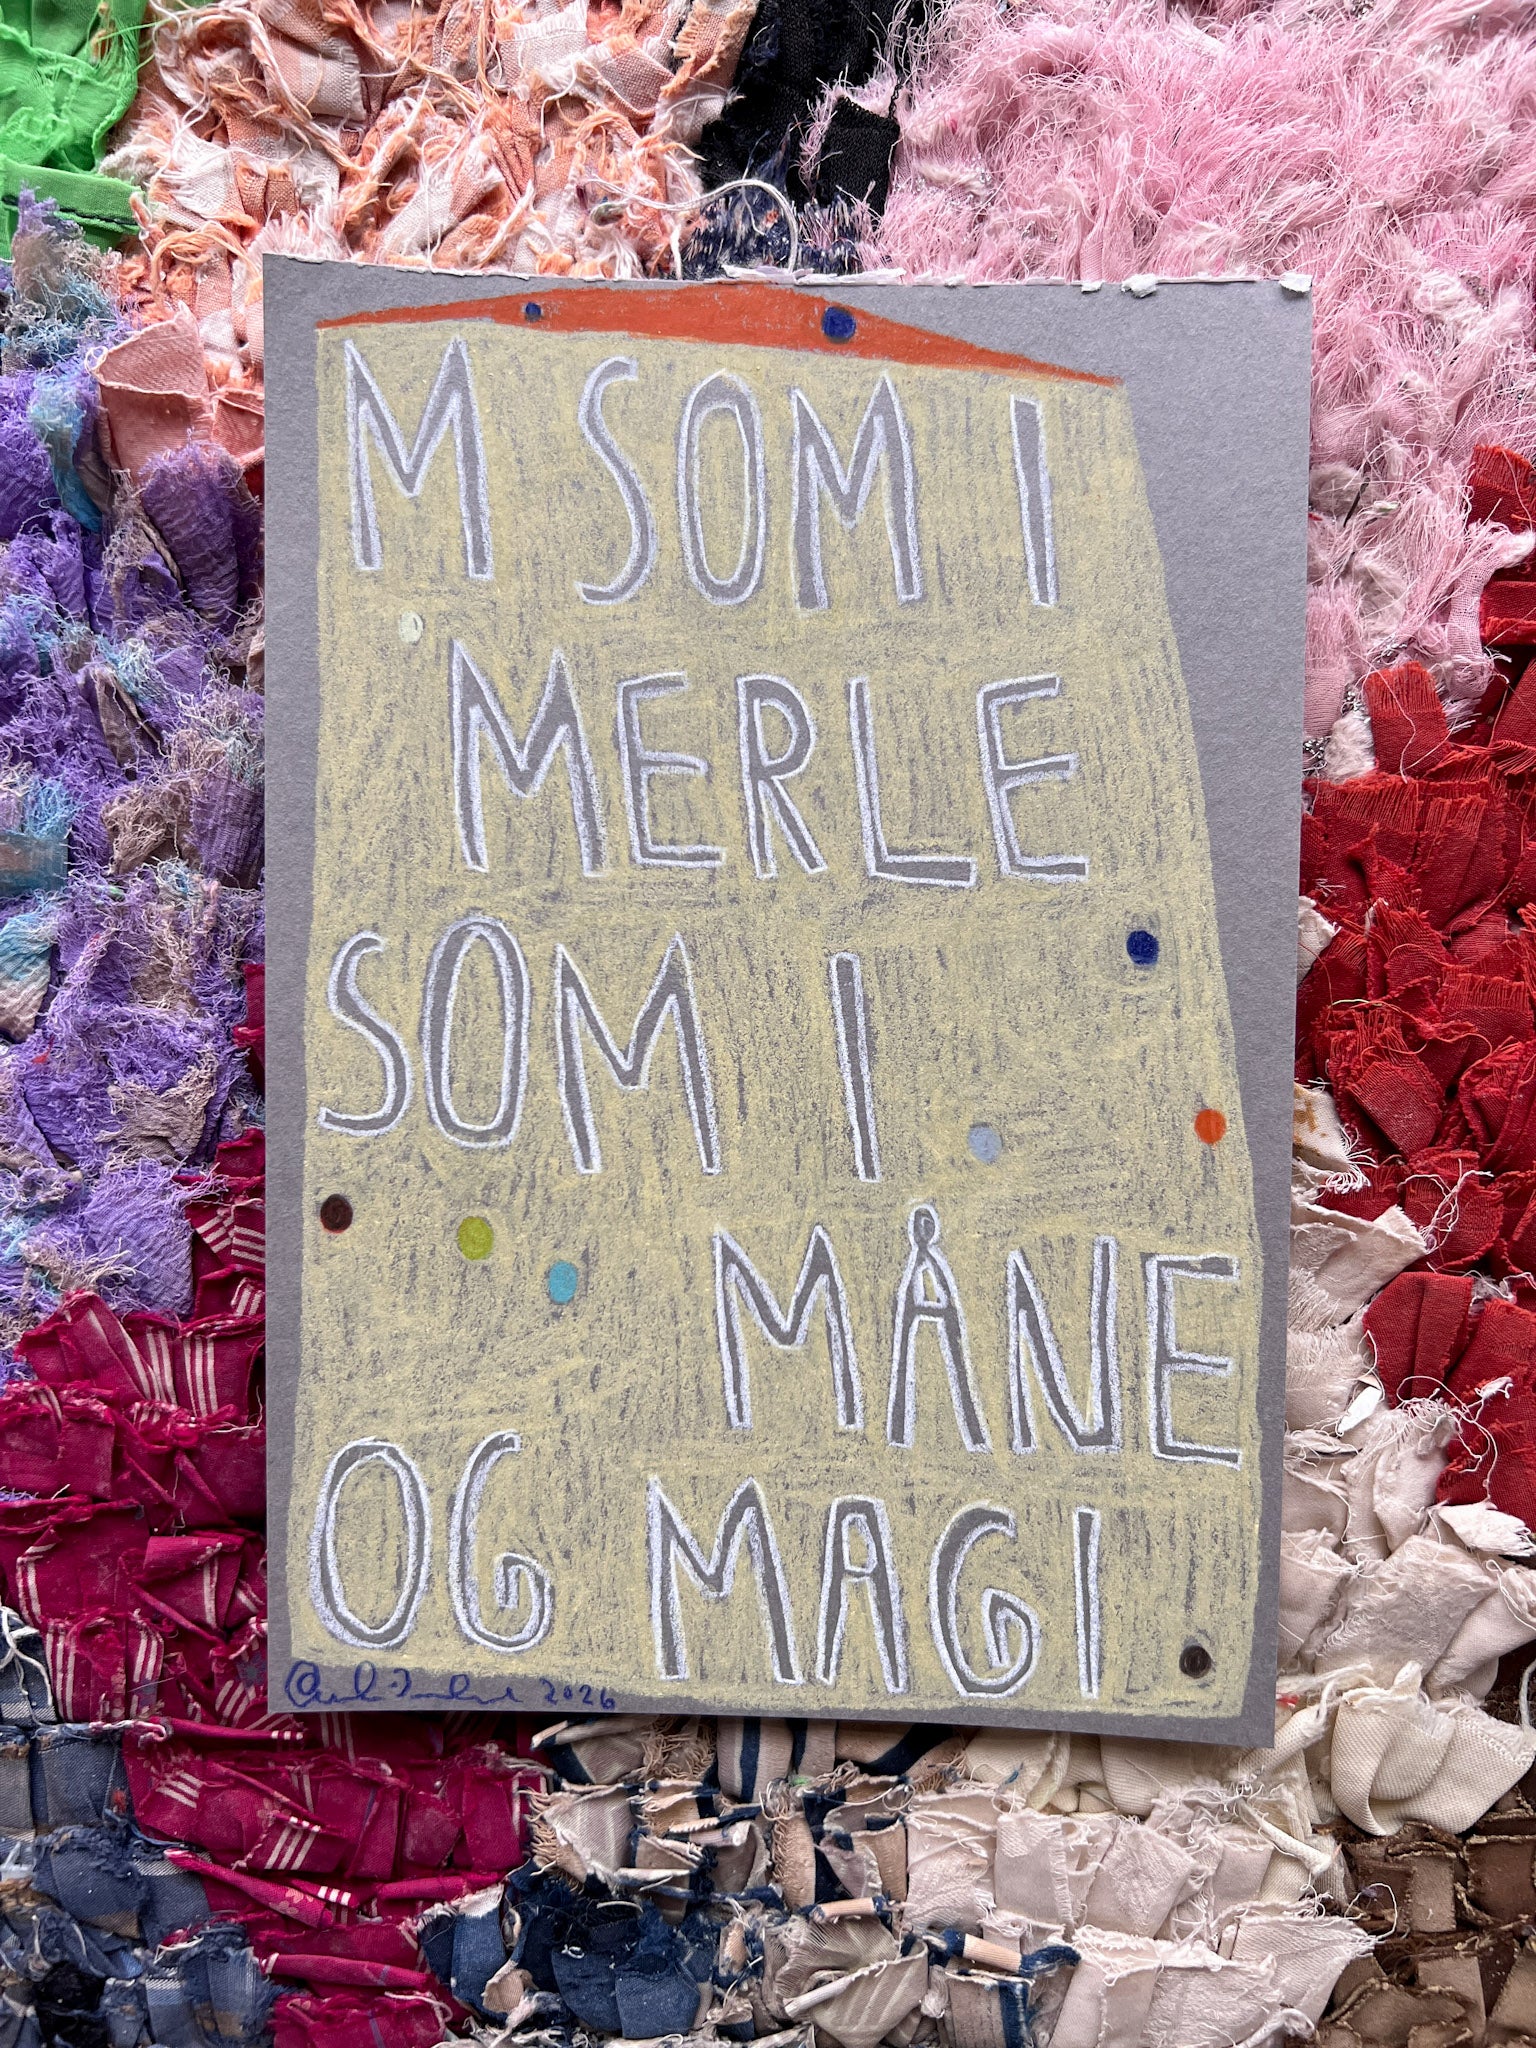 M SOM I
MERLE
SOM I
MÅNE
OG MAGI
2026